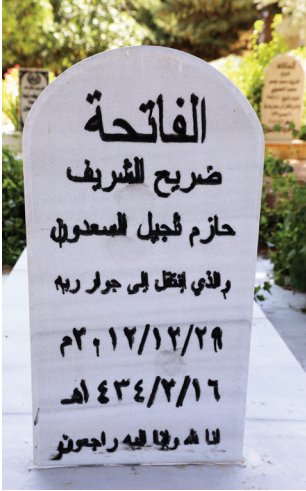 الفاتحة
ضريح الشريف
حازم ثجيل السعدون
والذي إنتقل إلى جوار ربه
٢٠١٢/١٢/٢٩م
١٤٣٤/٢/١٦هـ
انا لله وإنا اليه راجعون